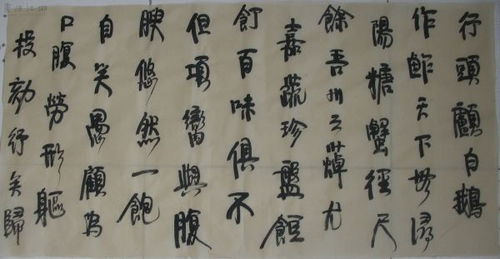 行頭顱白鵝
作鮓天下無潯
陽糖蟹徑尺
餘吾州之蕈尤
嘉蔬珍盤餖
飣百味俱不
但項臠與腹
腴悠然一飽
自笑愚顧為
口腹勞形軀
投劾行矣歸